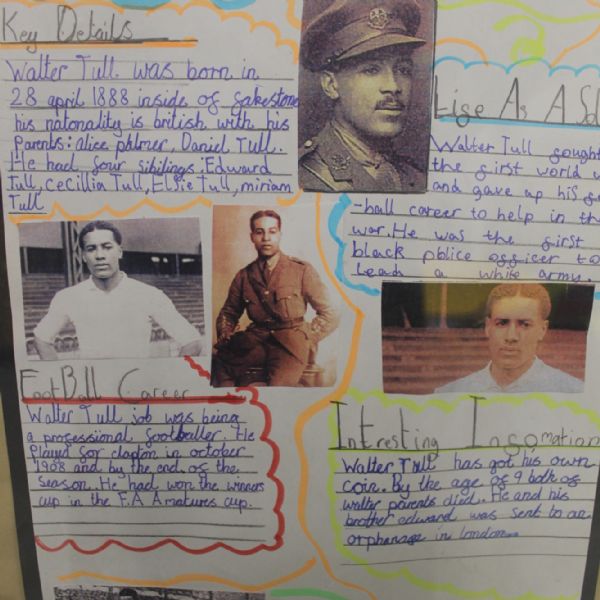 Key Details
Walter Tull was born in
28 april 1888 inside of fakestone
his nationality is british with his
Parents: alice palmer, Daniel Tull.
He had four sibilings: Edward
Tull, Cecillia Tull, Elsie Tull, miriam
Tull
Life As A Sol
Walter Tull fought
the first world w
and gave up his fo
-ball career to help in th
war. He was the first
black police officer to
lead a white army.
FootBall Career
Walter Tull job was being
a professional footballer. He
Played for clapton in october
1908 and by the end of the
season. He had won the winners
cup in the F.A Amatures cup.
Intresting Infomation
Walter Tull has got his own
coin. By the age of 9 both of
walter parents died. He and his
brother edward was sent to an
orphanage in london